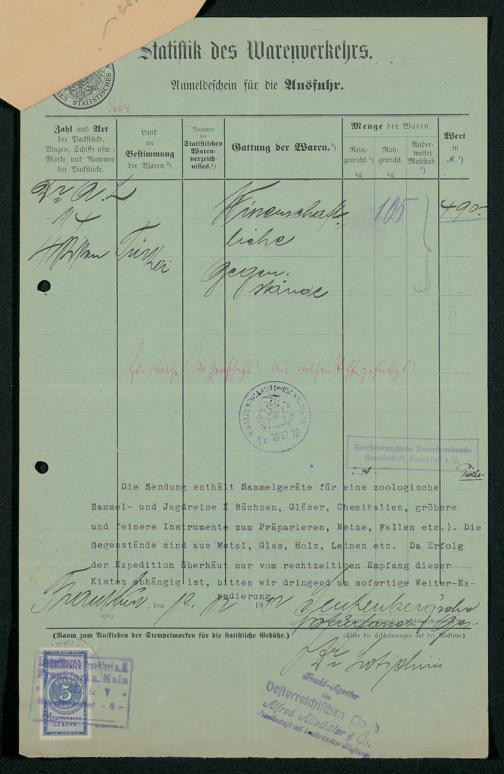 Statistik des Warenverkehrs.
Anmeldeschein für die Ausfuhr.
Zahl und Art der Packstücke, Wagen, Schiffe usw. Marke und Nummer der Packstücke.
Land der Bestimmung der Waren.
Nummer des Statistischen Warenverzeichnisses.
Gattung der Waren.
Menge der Waren.
Reingewicht. kg
Rohgewicht. kg
Anderweiter Maßstab.
Wert in M.
Dr. A. L
1/4
4 Kisten Türkei
Wissenschaftliche Gegenstände
105
490.-
Senckenbergische Naturforschende
Gesellschaft, Frankfurt a. M.
Die Sendung enthält Sammelgeräte für eine zoologische
Sammel- und Jagdreise X Büchsen, Gläser, Chemikalien, gröbere
und feinere Instrumente zum Präparieren, Netze, Fallen etc.). Die
Gegenstände sind aus Metal, Glas, Holz, Leinen etc. Da Erfolg
der Expedition überhaut nur vom rechtzeitigen Empfang dieser
Kisten abhängig ist, bitten wir dringend um sofortige Weiter-Ex-
pedierung
Frankfurt, den 12/12 1912
Senckenbergische
(Raum zum Aufkleben der Stempelmarken für die statistische Gebühr.)
(Siehe die Erläuterungen auf der Rückseite.)
5
Statistische Gebühr
Oesterreichischen Lloyd